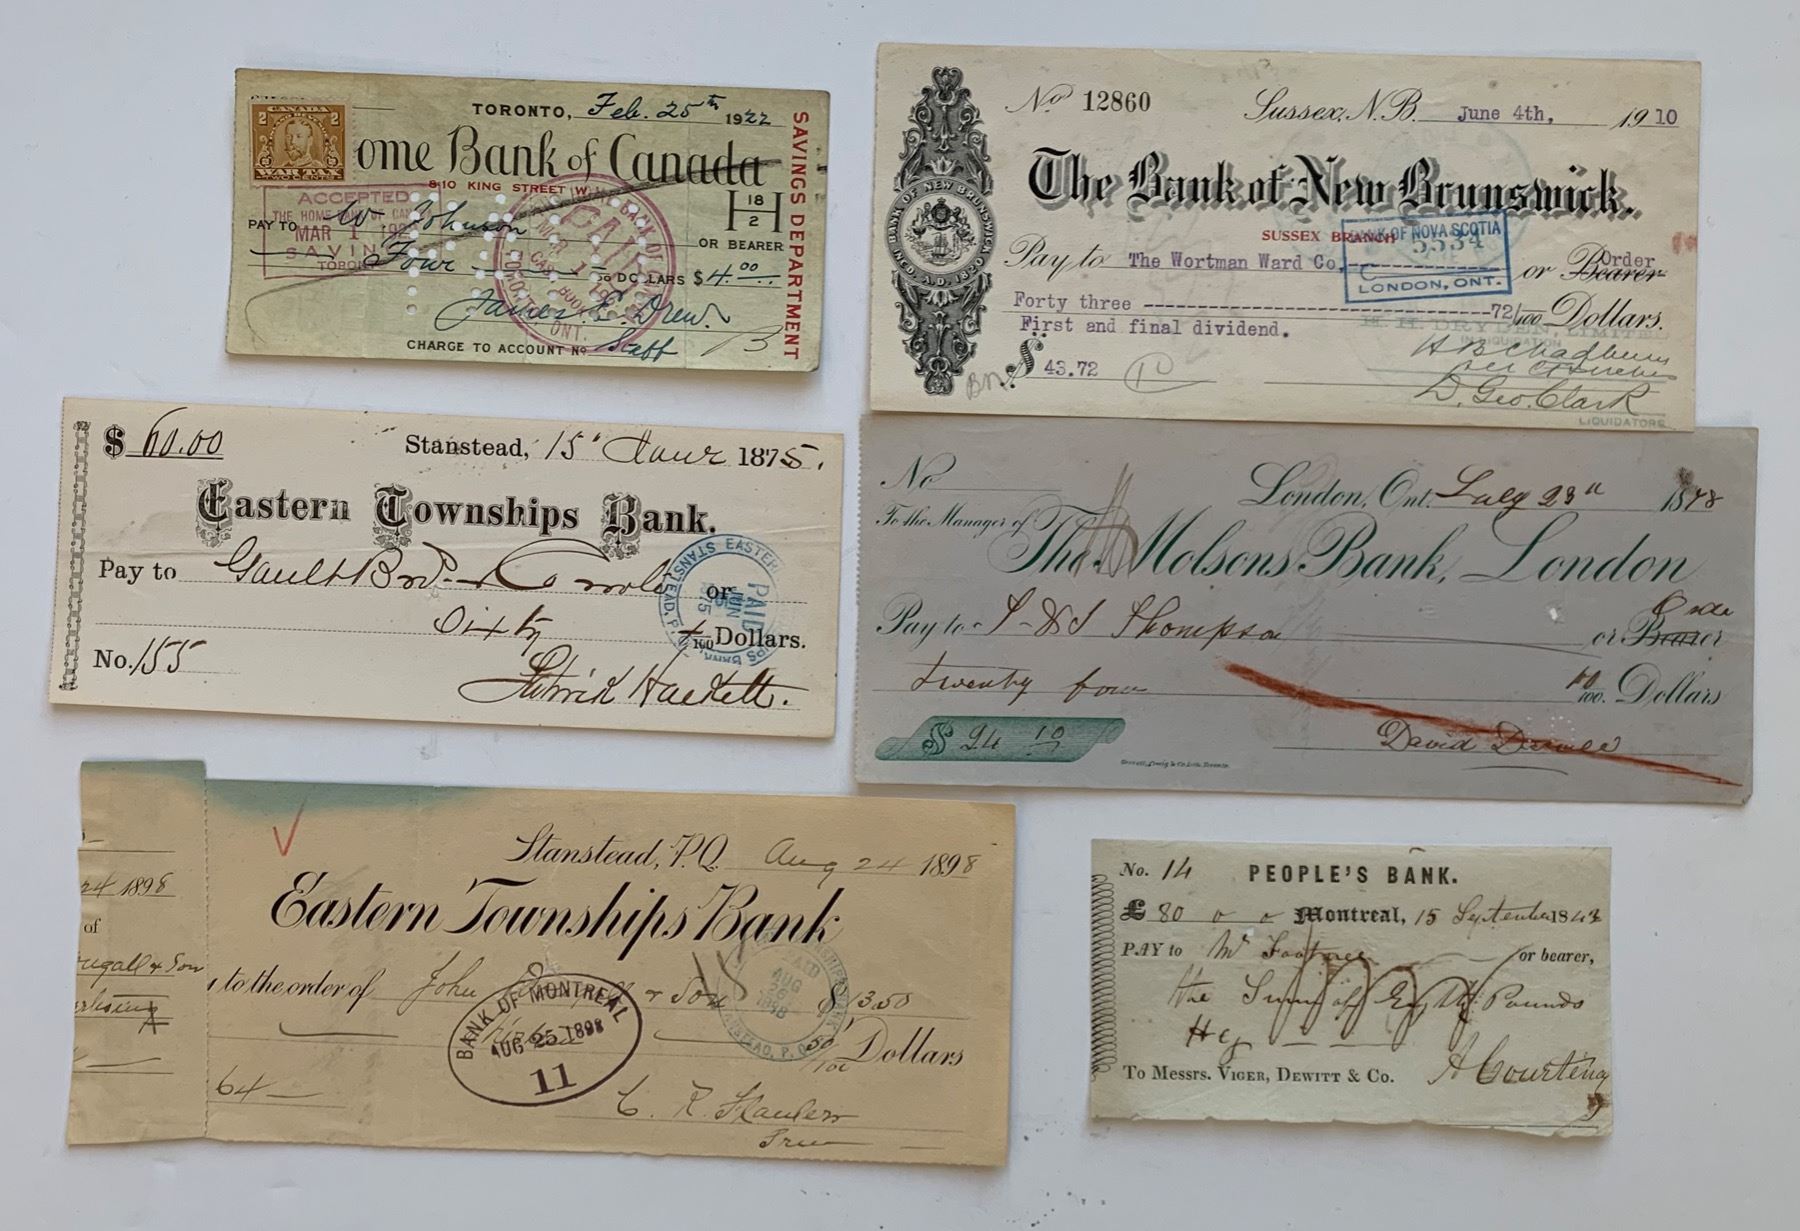 CANADA
2 2
WAR TAX
TWO CENTS
TORONTO, Feb. 25th 1922
ome Bank of Canada
8-10 KING STREET W.
ACCEPTED
THE HOME BANK OF CAN
MAR 1 192
SAVIN
TORONTO
PAY TO W Johnson
H 18 2
OR BEARER
Four DOLLARS $ 4.00
James E. Drew.
CHARGE TO ACCOUNT No Staff
SAVINGS DEPARTMENT
PAID
MAR 1
TORONTO, ONT.
No 12860
Sussex, N.B. June 4th, 1910
The Bank of New Brunswick.
BANK OF NEW BRUNSWICK
INC'D. A.D. 1820
SUSSEX BRANCH
BANK OF NOVA SCOTIA
5534
LONDON, ONT.
Pay to The Wortman Ward Co. or Bearer Order
Forty three ---72/100 Dollars.
First and final dividend.
IN LIQUIDATION
$ 43.72
D. Geo. Clark
LIQUIDATORS
$ 60.00
Stanstead, 15 1875.
Eastern Townships Bank.
Pay to Gault Bros. or
Sixty /100 Dollars.
No. 155
Hackett.
PAID
JUN
No
London, Ont. July 23 1878
To the Manager of
The Molsons Bank, London
Pay to Thompson or Bearer Order
Twenty four 10/100 Dollars
$ 24 10
David
Stanstead, P.Q. Aug 24 1898
Eastern Townships Bank
24 1898
of
ugall & Son
to the order of John & Son $ 13.50
50/100 Dollars
BANK OF MONTREAL
AUG 25 1898
11
PAID
AUG
1898
64
C. R. Flanders
No. 14 PEOPLE'S BANK.
£ 80 0 0 Montreal, 15 September 1843
PAY to Mr or bearer,
the Sum of Eighty Pounds
Hcy
To Messrs. VIGER, DEWITT & Co. A Courtenay